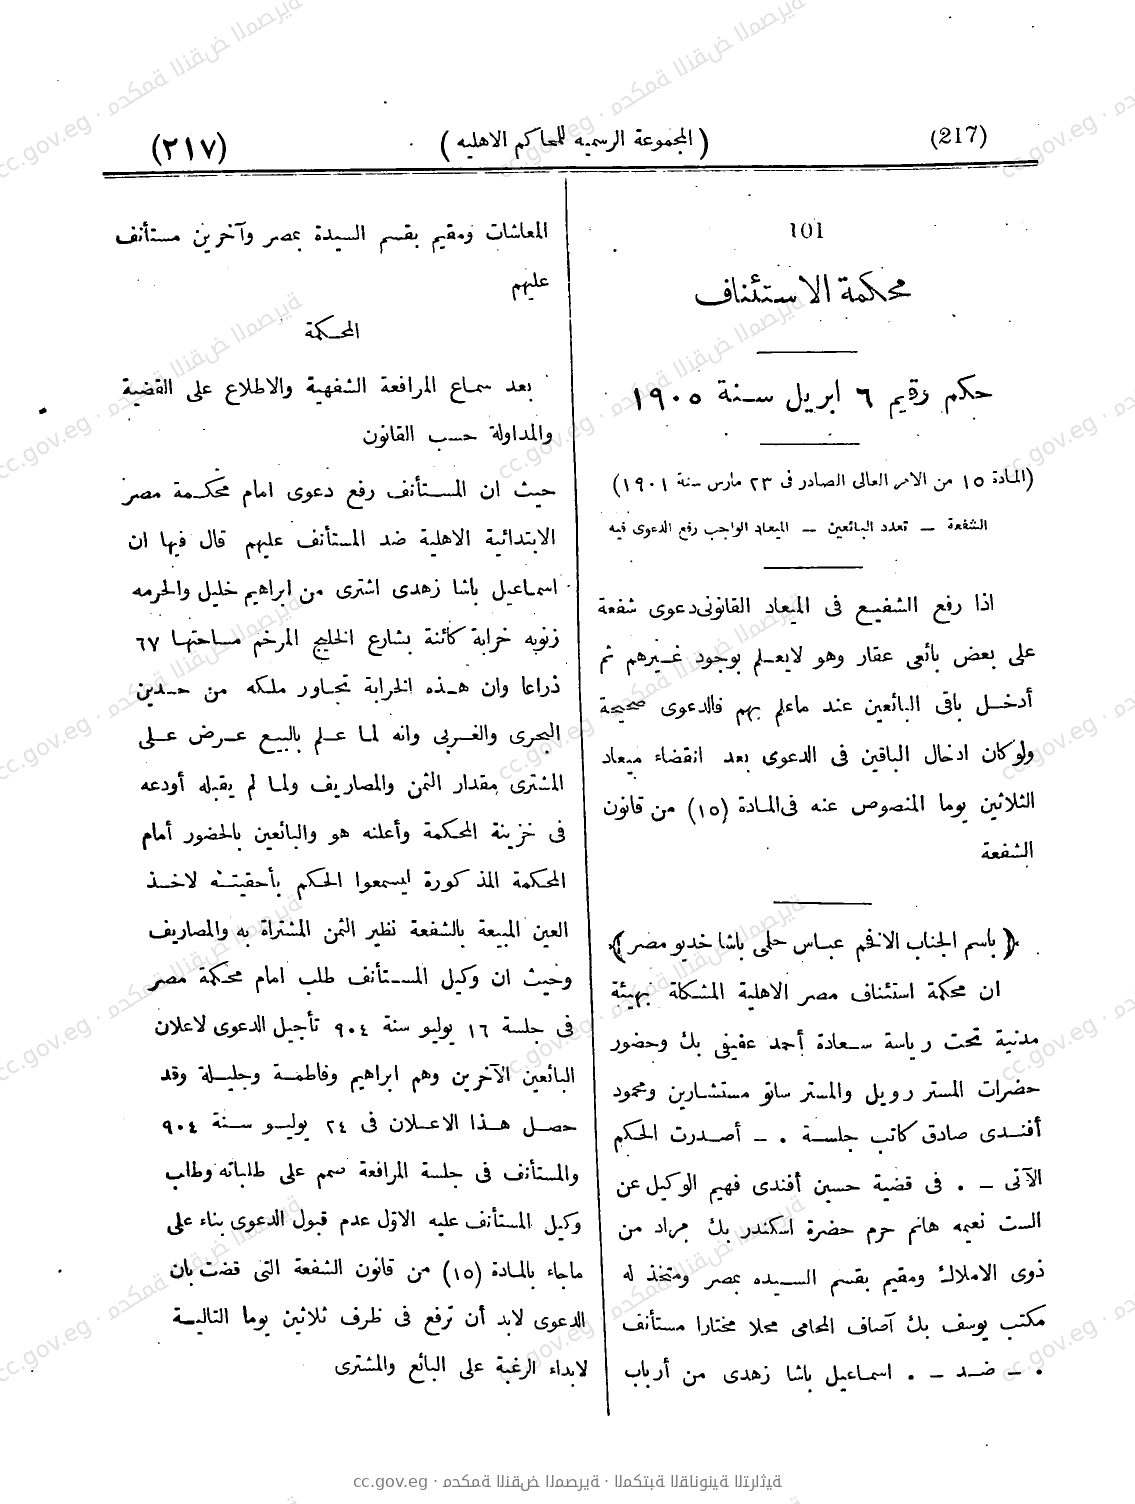 (217)
(المجموعة الرسميه للمحاكم الاهليه)
(٢١٧)
101
محكمة الاستئناف
حكم رقيم ٦ ابريل سنة ١٩٠٥
(المادة ١٥ من الامر العالى الصادر فى ٢٣ مارس سنة ١٩٠١)
الشفعة – تعدد البائعين – الميعاد الواجب رفع الدعوى فيه
اذا رفع الشفيع فى الميعاد القانونى دعوى شفعة
على بعض بائعى عقار وهو لايعلم بوجود غيرهم ثم
أدخل باقى البائعين عند ماعلم بهم فالدعوى صحيحة
ولو كان ادخال الباقين فى الدعوى بعد انقضاء ميعاد
الثلاثين يوما المنصوص عنه فى المادة (١٥) من قانون
الشفعة
﴿باسم الجناب الافخم عباس حلمى باشا خديو مصر﴾
ان محكمة استئناف مصر الاهلية المشكلة بهيئة
مدنية تحت رياسة سعادة أحمد عفيفى بك وحضور
حضرات المستر رويل والمستر ساتو مستشارين ومحمود
أفندى صادق كاتب جلسة . – أصدرت الحكم
الآتى – . فى قضية حسين أفندى فهيم الوكيل عن
الست نعيمه هانم حرم حضرة اسكندر بك مراد من
ذوى الاملاك ومقيم بقسم السيده بمصر ومتخذ له
مكتب يوسف بك آصاف المحامى محلا مختارا مستأنف
. – ضد – . اسماعيل باشا زهدى من أرباب
المعاشات ومقيم بقسم السيدة بمصر وآخرين مستأنف
عليهم
المحكمة
بعد سماع المرافعة الشفهية والاطلاع على القضية
والمداولة حسب القانون
حيث ان المستأنف رفع دعوى امام محكمة مصر
الابتدائية الاهلية ضد المستأنف عليهم قال فيها ان
اسماعيل باشا زهدى اشترى من ابراهيم خليل والحرمه
زنوبه خرابة كائنة بشارع الخليج المرخم مساحتها ٦٧
ذراعا وان هذه الخرابة تجاور ملكه من حدين
البحرى والغربى وانه لما علم بالبيع عرض على
المشترى مقدار الثمن والمصاريف ولما لم يقبله أودعه
فى خزينة المحكمة وأعلنه هو والبائعين بالحضور أمام
المحكمة المذكورة ليسمعوا الحكم بأحقيته لاخذ
العين المبيعة بالشفعة نظير الثمن المشتراة به والمصاريف
وحيث ان وكيل المستأنف طلب امام محكمة مصر
فى جلسة ١٦ يوليو سنة ٩٠٤ تأجيل الدعوى لاعلان
البائعين الآخرين وهم ابراهيم وفاطمة وجليلة وقد
حصل هذا الاعلان فى ٢٤ يوليو سنة ٩٠٤
والمستأنف فى جلسة المرافعة صمم على طلباته وطلب
وكيل المستأنف عليه الاول عدم قبول الدعوى بناء على
ماجاء بالمادة (١٥) من قانون الشفعة التى قضت بان
الدعوى لابد أن ترفع فى ظرف ثلاثين يوما التالية
لابداء الرغبة على البائع والمشترى
cc.gov.eg · محكمة النقض المصرية · المكتبة القانونية التراثية